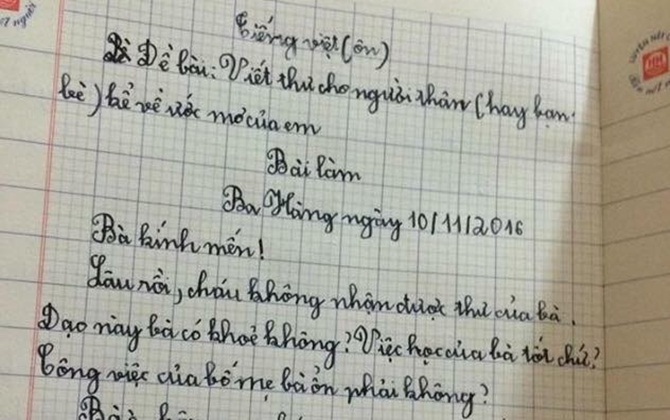 Tiếng việt (ôn)
Đề bài: Viết thư cho người thân (hay bạn
bè) kể về ước mơ của em
Bài làm
Ba Hàng ngày 10/11/2016
Bà kính mến!
Lâu rồi, cháu không nhận được thư của bà.
Dạo này bà có khoẻ không? Việc học của bà tốt chứ?
Công việc của bố mẹ bà ổn phải không?